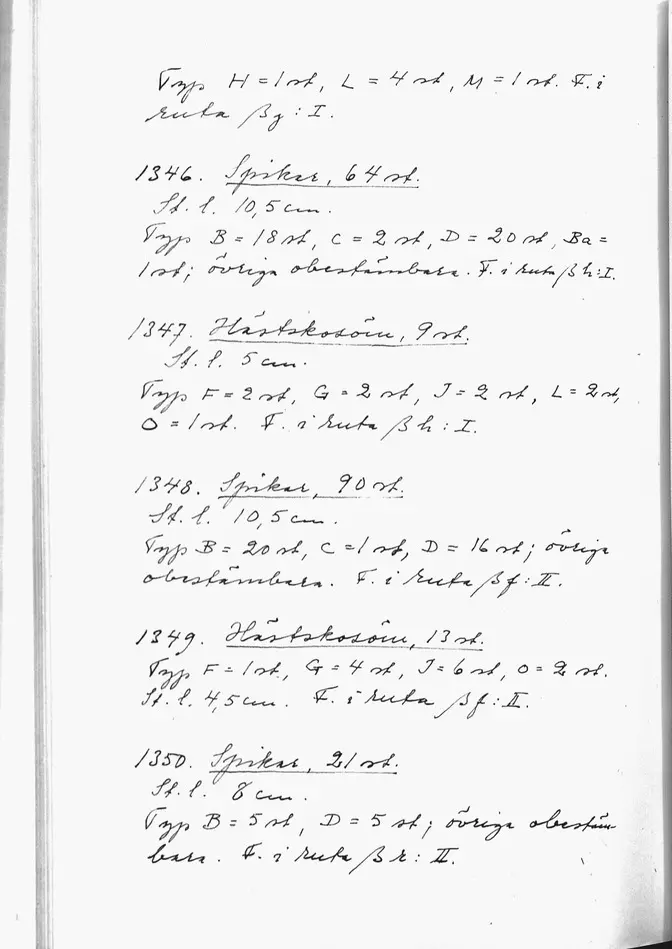 Typ H = 1 st, L = 4 st, M = 1 st. F. i
ruta β g : I.
1346. Spikar, 64 st.
St. l. 10,5 cm.
Typ B = 18 st, C = 2 st, D = 20 st, Ba =
1 st; övriga obestämbara. F. i ruta β h : I.
1347. Hästskosöm, 9 st.
St. l. 5 cm.
Typ F = 2 st, G = 2 st, J = 2 st, L = 2 st,
O = 1 st. F. i ruta β h : I.
1348. Spikar, 90 st.
St. l. 10,5 cm.
Typ B = 20 st, C = 1 st, D = 16 st; övriga
obestämbara. F. i ruta β f : II.
1349. Hästskosöm, 13 st.
Typ F = 1 st, G = 4 st, J = 6 st, O = 2 st.
St. l. 4,5 cm. F. i ruta β f : II.
1350. Spikar, 21 st.
St. l. 8 cm.
Typ B = 5 st, D = 5 st; övriga obestäm-
bara. F. i ruta β k : II.